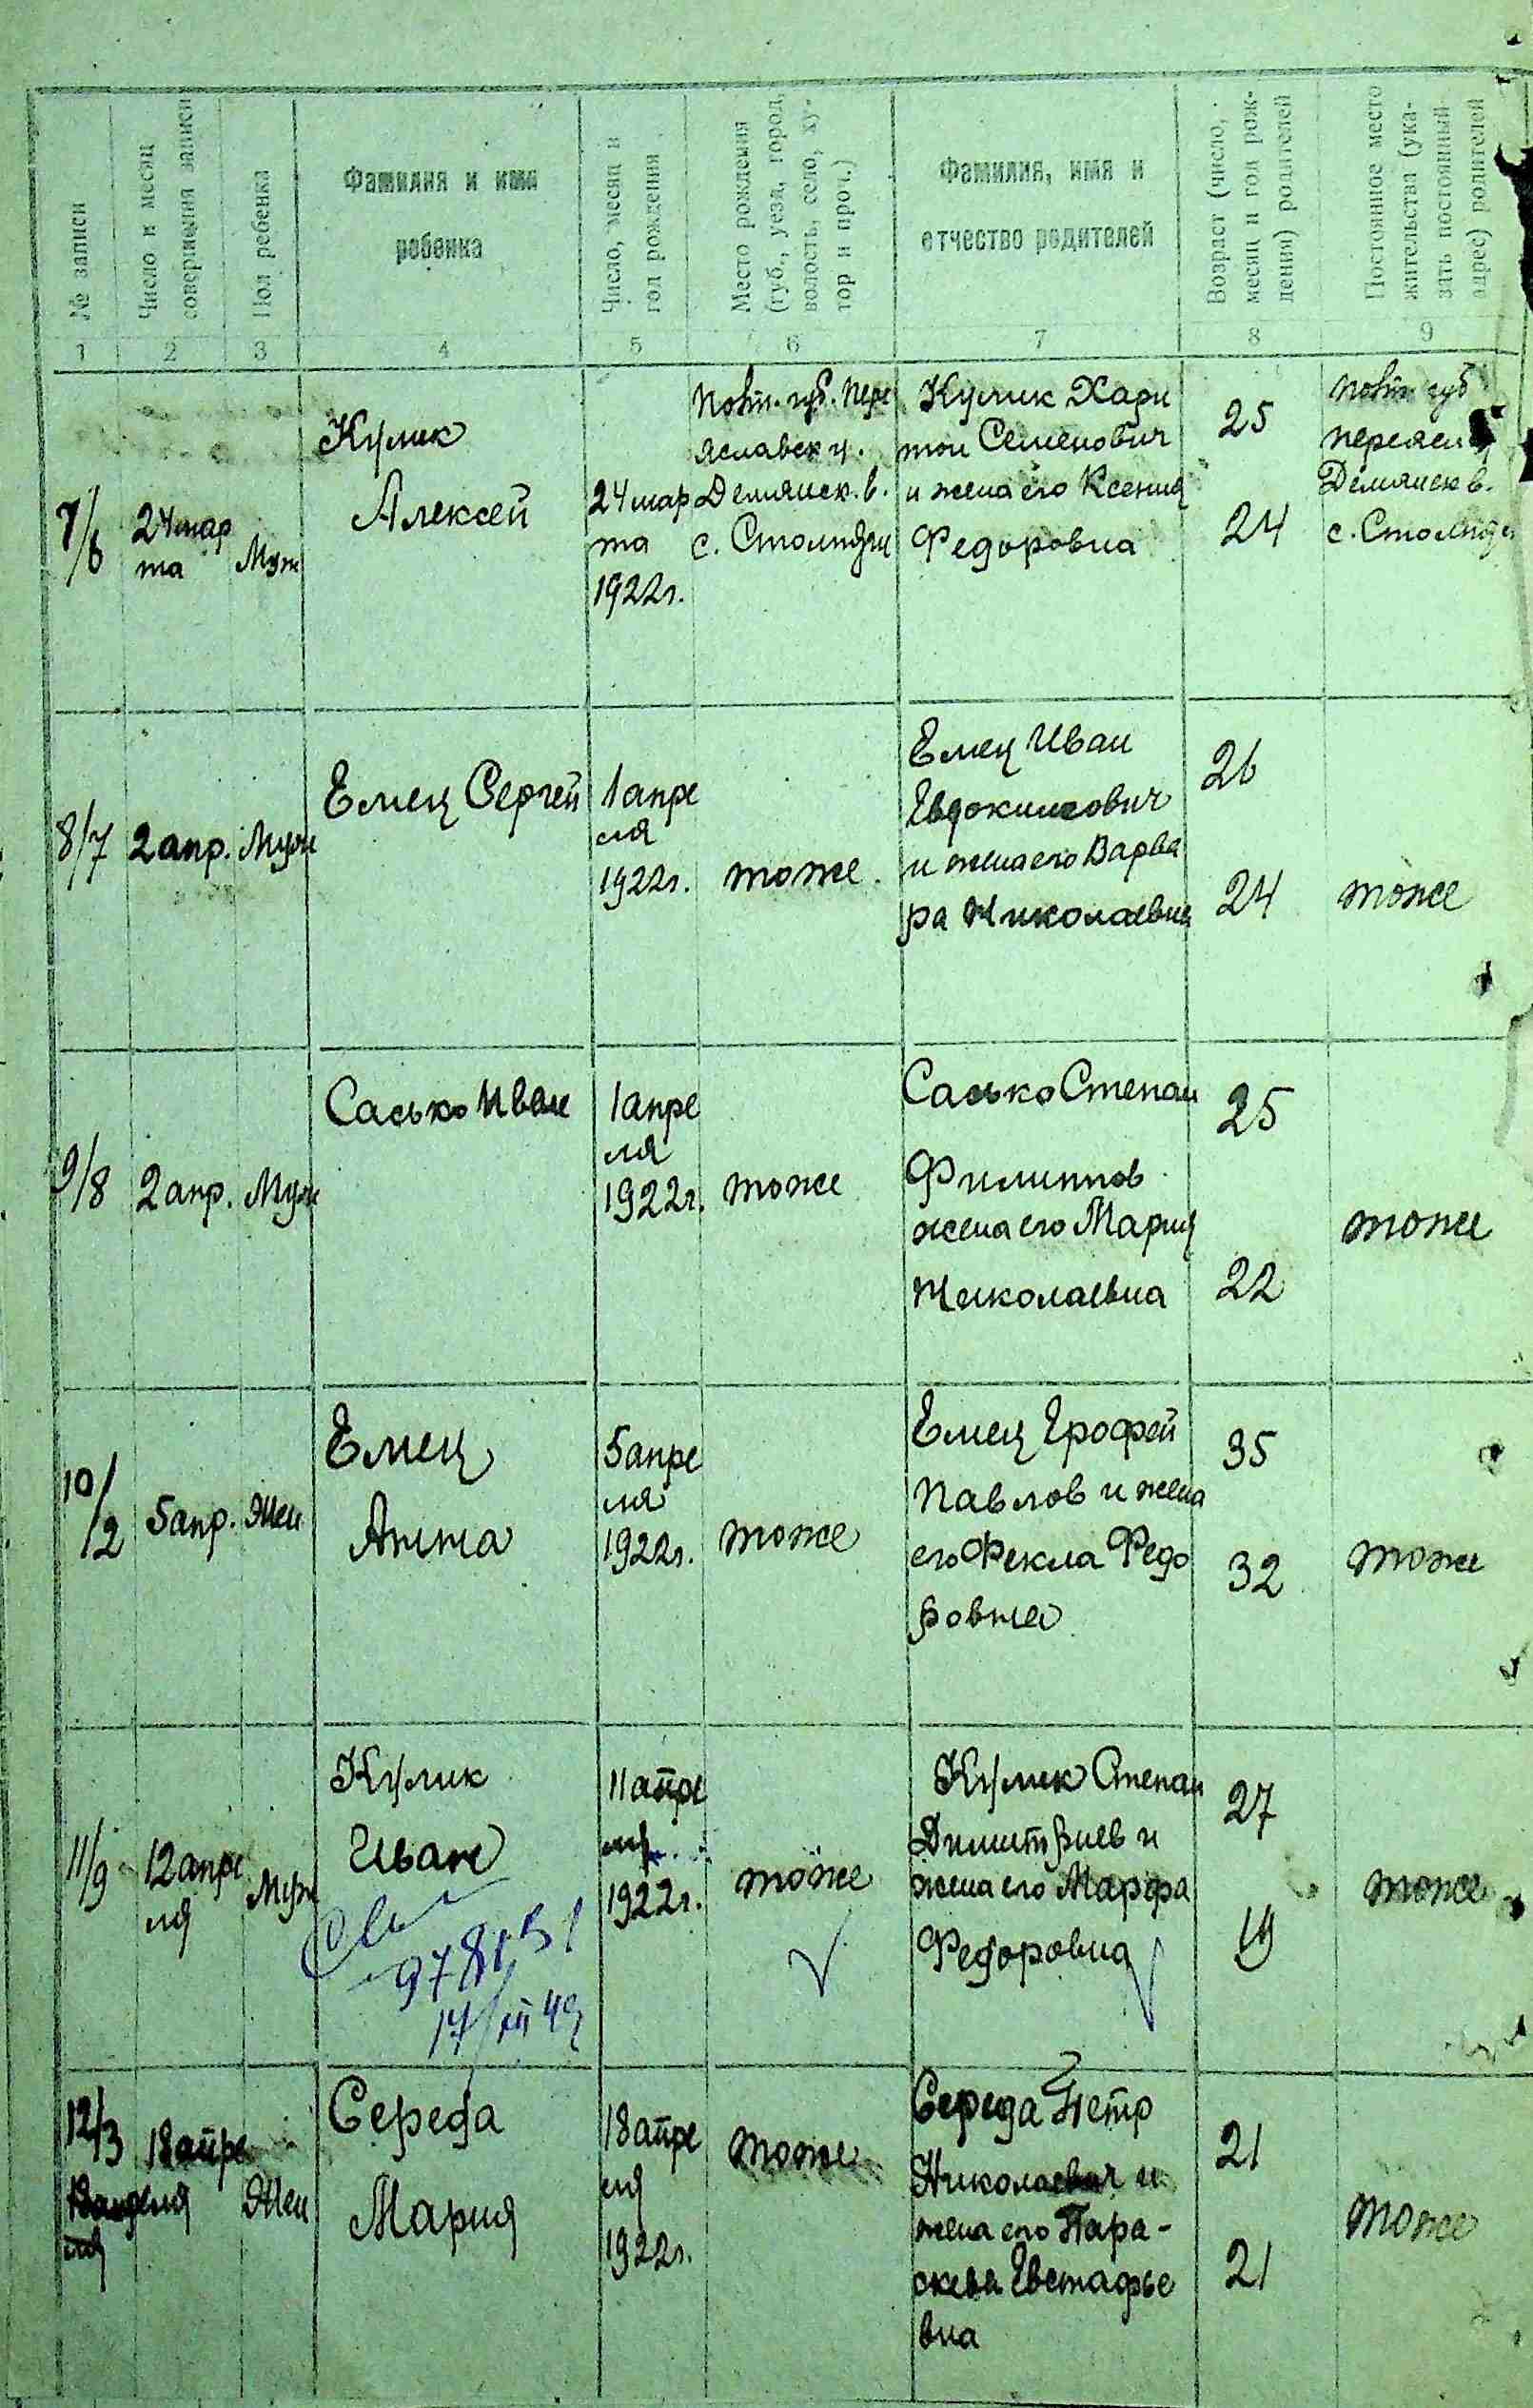 № записи
Число и месяц
совершения записи
Пол ребенка
Фамилия и имя
ребенка
Число, месяц и
год рождения
Место рождения
(губ., уезд, город,
волость, село, ху-
тор и проч.)
Фамилия, имя и
отчество родителей
Возраст (число,
месяц и год рож-
дения) родителей
Постоянное место
жительства (ука-
зать постоянный
адрес) родителей
1 2 3 4 5 6 7 8 9
7/6
24 мар
та
Муж
Кулик
Алексей
24 мар
та
1922г.
Полт. губ. Пере
яславск у.
Демянск. в.
с. Столпяги
Кулик Хари
тон Семенович
и жена его Ксения
Федоровна
25
24
Полт губ
переясл
Демянск в.
с. Столпяги
8/7
2 апр.
Муж
Емец Сергей
1 апре
ля
1922г.
тоже.
Емец Иван
Евдокимович
и жена его Варва
ра Николаевна
26
24
тоже
9/8
2 апр.
Муж
Сасько Иван
1 апре
ля
1922г.
тоже
Сасько Степан
Филиппов
жена его Мария
Николаевна
25
22
тоже
10/2
5 апр.
Жен
Емец
Анна
5 апре
ля
1922г.
тоже
Емец Ерофей
Павлов и жена
его Фекла Федо
ровна
35
32
тоже
11/9
12 апре
ля
Муж
Кулик
Иван
17/XII 49
11 апре
ля
1922г.
тоже
Кулик Степан
Димитриев и
жена его Марфа
Федоровна
27
19
тоже
12/3
18 апре
ля
Жен
Середа
Мария
18 апре
ля
1922г.
тоже
Середа Петр
Николаевич и
жена его Пара-
скева Евстафье
вна
21
21
тоже